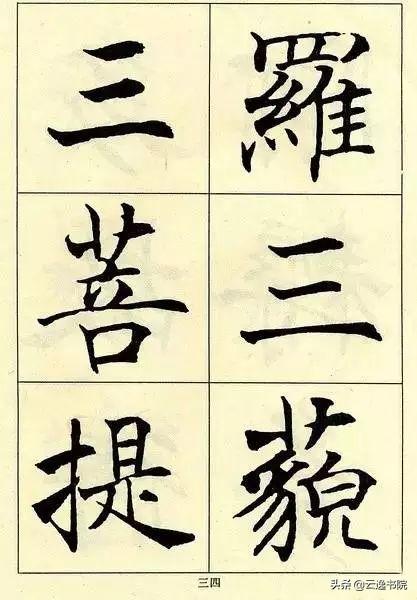 羅三藐
三菩提
三四
头条 @云逸书院